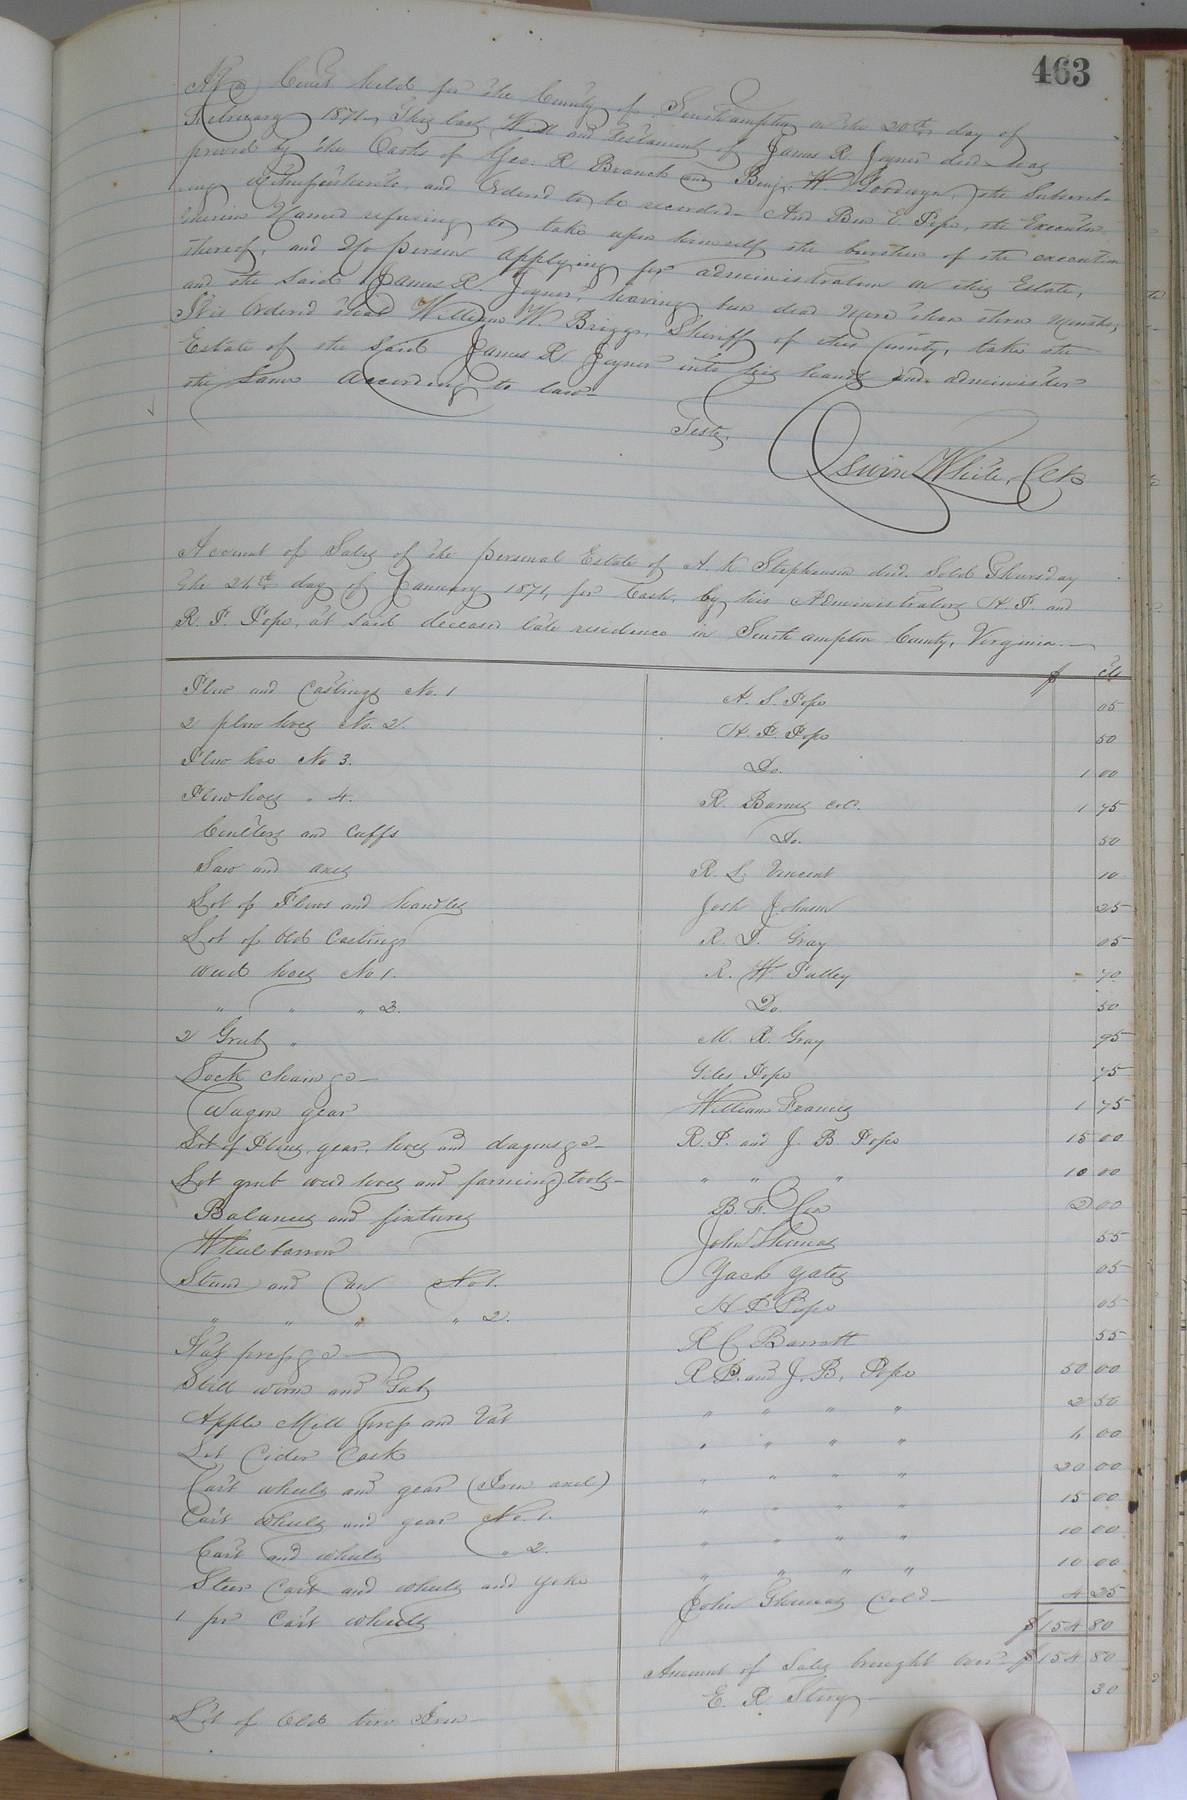 463
At a Court held for the County of Southampton on the 20th day of
February 1871, This last Will and Testament of James R. Joyner decd. was
proved by the Oaths of Geo. R. Branch and Benj. W. Goodwyn, the Subscrib-
ing Witnesses thereto, and Ordered to be recorded. And Ben E. Pope, the Executor
therein Named refusing to take upon himself the burthen of the execution
thereof, and No person applying for administration on this Estate,
and the said James R. Joyner, having been dead More than three Months,
It is Ordered that William W. Briggs, Sheriff of this County, take the
Estate of the said James R Joyner into his hands and administer
the Same according to law.
Teste,
White, Clk
Account of Sales of the personal Estate of A. K Stephenson decd. Sold Thursday
The day of January 1871, for Cash, by his Administrators H. P. and
R. P. Pope, at said deceased late residence in Southampton County, Virginia.
$ cts
Plow and Castings No. 1 A. S. Pope 05
2 plow hoes No. 2. H. P. Pope 50
Plow hoe No 3. Do. 1 00
Plow hoes " 4. R. Barnes cold. 1 75
Coulters and cuffs Do. 50
Saw and axes R. L. Vincent 10
Lot of Plows and handles Josh Johnson 25
Lot of Old Castings R. D. Gray 05
Weed hoes No 1. R. W. Pulley 70
" " " 2. Do. 50
2 Grub " M. R. Gray 95
Lock chain &c Giles Pope 75
Wagon gear William Francis 1 75
Lot of Plows, gear, hoes and &c R. P. and J. B. Pope 15 00
Lot grub weed hoes and farming tools " " " 10 00
Balances and fixtures B F Cox 2 00
Wheelbarrow John Thomas 55
Stand and Can No 1. Zach Yates 05
" " " " 2. H P Pope 05
press &c R C Barrett 55
Still worm and Tub R P. and J. B. Pope 50 00
Apple Mill press and Vat " " " " 2 50
Lot Cider Cask " " " " 00
Cart wheels and gear (Iron axel) " " " " 20 00
Cart wheels and gear No. 1. " " " " 15 00
Cart and wheels " 2. " " " " 10 00
Steer Cart and wheels and yoke " " " " 10 00
1 pr Cart wheels John Thomas Cold 4 25
$154 80
Amount of Sales brought over $154 80
Lot of Old Iron E. R. 30